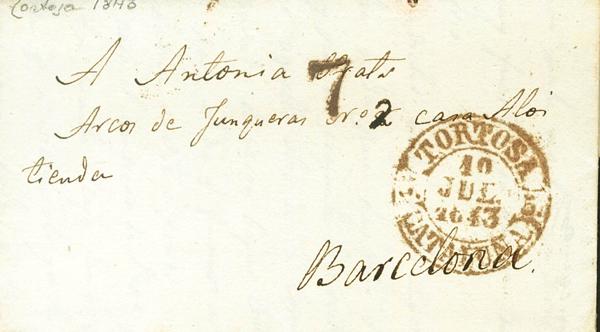 Tortosa 1843
A Antonia Prats
7
Arcos de Junqueras Nro. 2 casa Aloi
tienda
TORTOSA
10
JUL
1843
CATALUÑA
Barcelona.